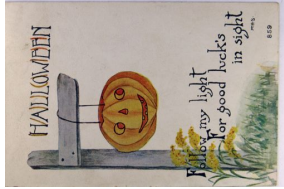 HALLOWEEN
Follow my light
For good luck's
in sight
859